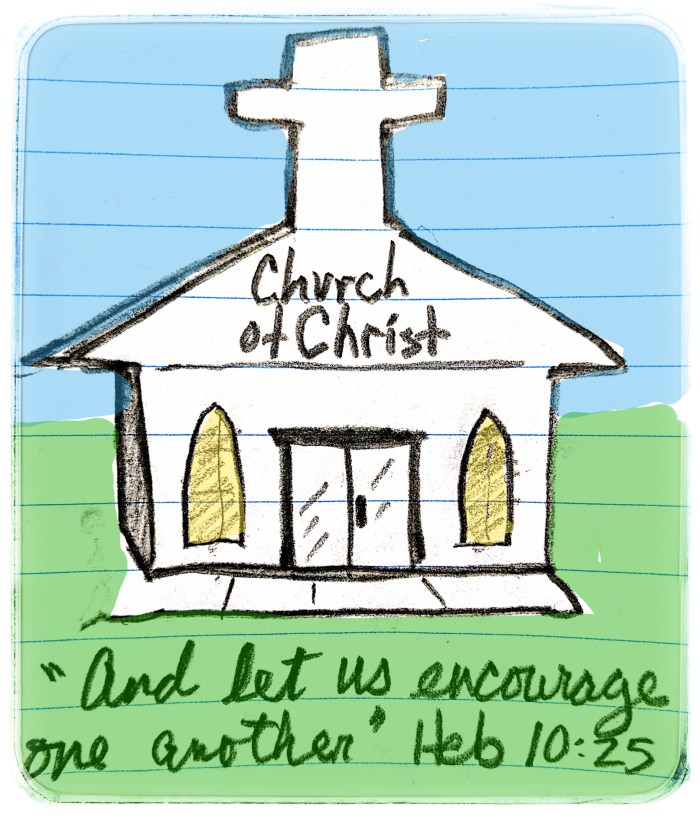 Church
of Christ
"And let us encourage
one another" Heb 10:25